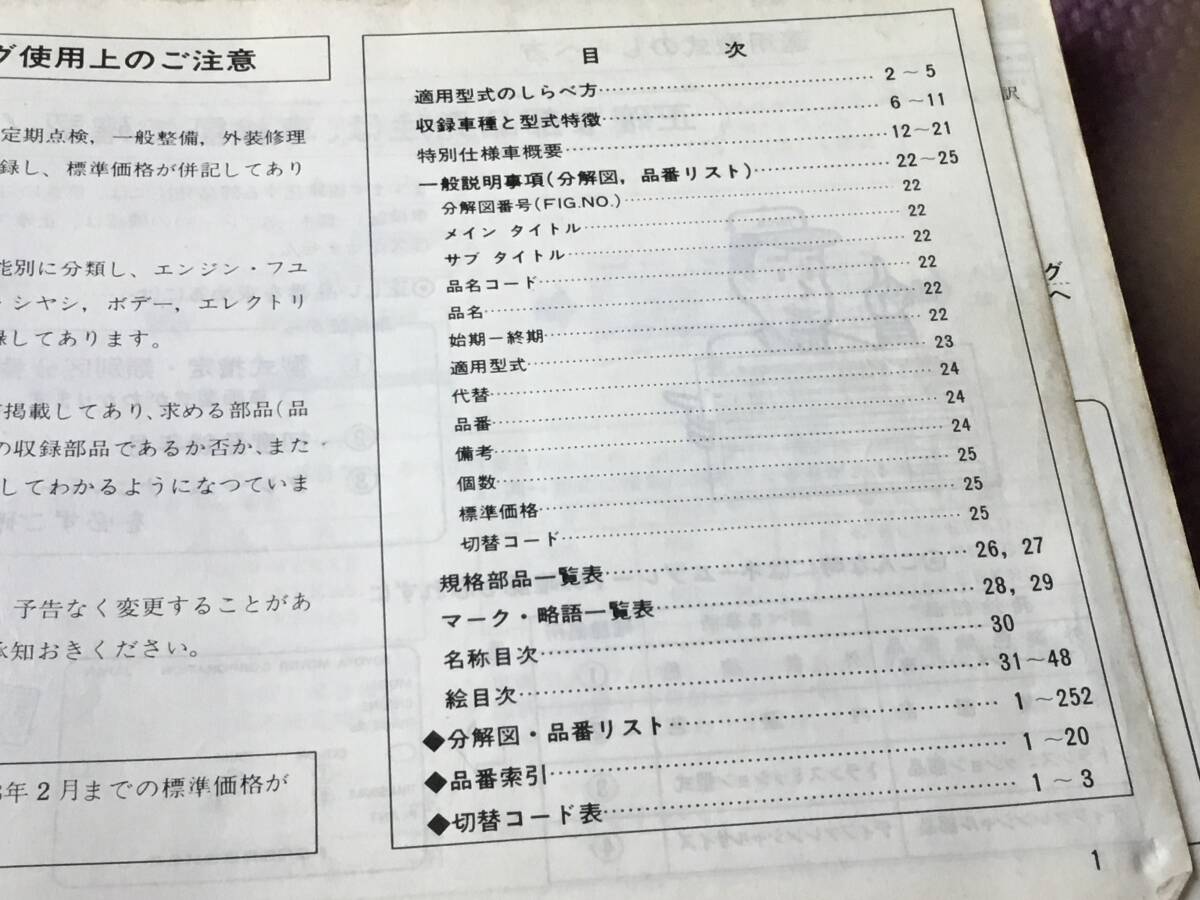 グ使用上のご注意
定期点検，一般整備，外装修理
録し、標準価格が併記してあり
能別に分類し、エンジン・フユ
シヤシ，ボデー，エレクトリ
録してあります。
掲載してあり、求める部品(品
の収録部品であるか否か、また
してわかるようになつていま
予告なく変更することがあ
承知おきください。
年２月までの標準価格が
目 次
適用型式のしらべ方 2～5
収録車種と型式特徴 6～11
特別仕様車概要 12～21
一般説明事項(分解図，品番リスト) 22～25
分解図番号(FIG.NO.) 22
メイン タイトル 22
サブ タイトル 22
品名コード 22
品名 22
始期－終期 22
適用型式 23
代替 24
品番 24
備考 24
個数 25
標準価格 25
切替コード 25
規格部品一覧表 26，27
マーク・略語一覧表 28，29
名称目次 30
絵目次 31～48
◆分解図・品番リスト 1～252
◆品番索引 1～20
◆切替コード表 1～3
1
訳
グ
へ